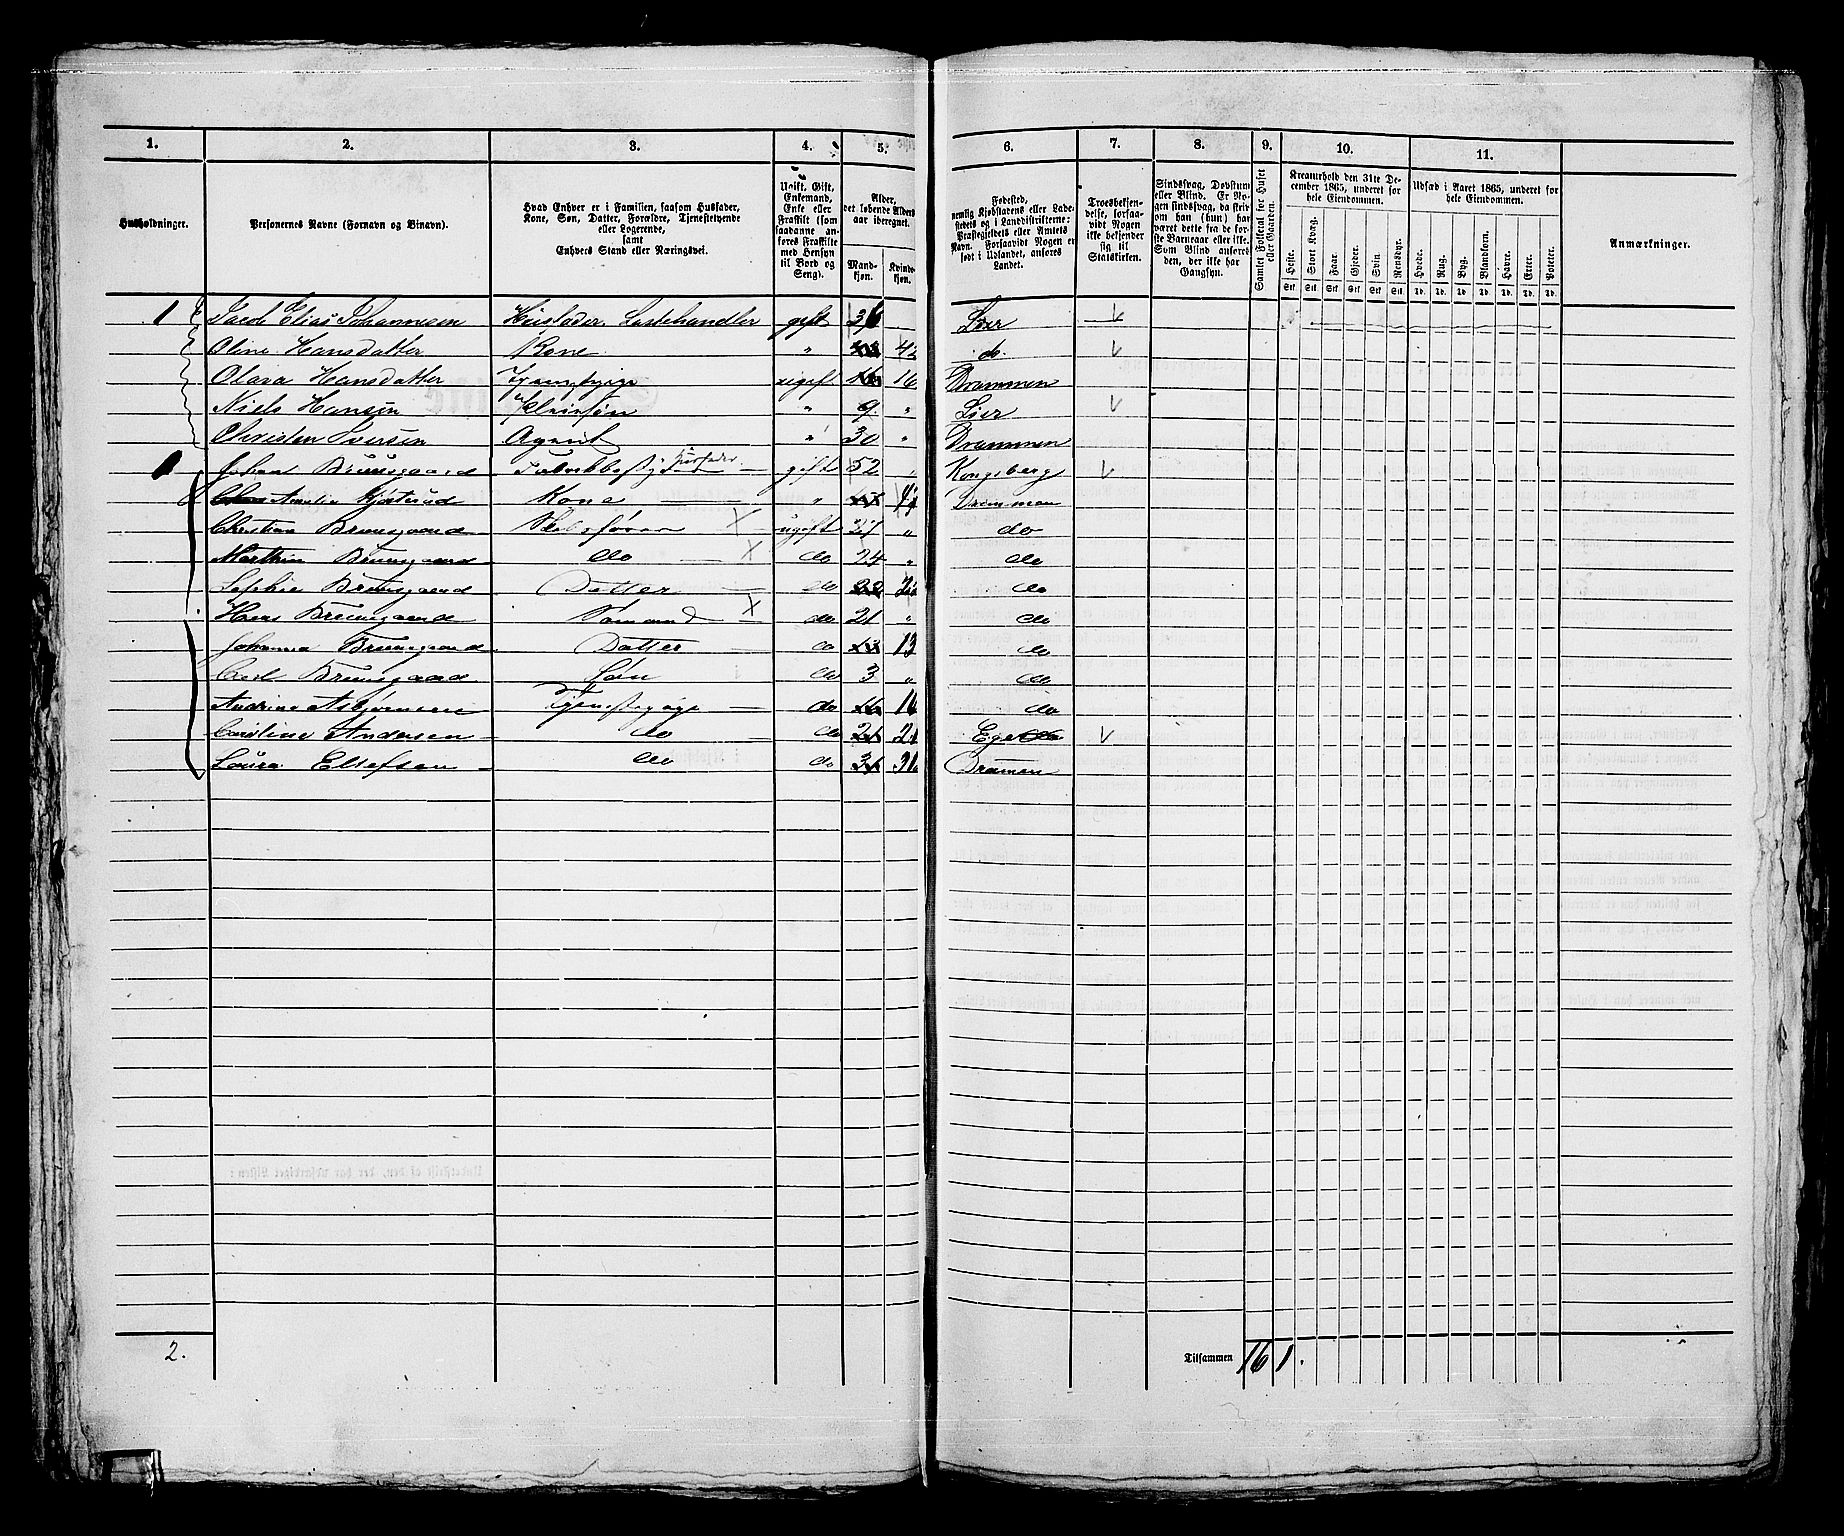 1. 2. 3. 4. 5. 6. 7. 8. 9. 10. 11.
Husholdninger.
Personernes Navne (Fornavn og Binavn).
Hvad Enhver er i Familien, saasom Husfader,
Kone, Søn, Datter, Forældre, Tjenestetyende
eller Logerende,
samt
Enhvers Stand eller Næringsvei.
Ugift, Gift,
Enkemand,
Enke eller
Fraskilt (som
saadanne an-
føres Fraskilte
med Hensyn
til Bord og
Seng).
Alder,
det løbende Alders-
aar iberegnet.
Mand-
kjøn.
Kvinde-
kjøn.
Fødested,
nemlig Kjøbstadens eller Lade-
stedets og i Landdistrikterne:
Præstegjeldets eller Amtets
Navn. Forsaavidt Nogen er
født i Udlandet, anføres
Landet.
Troesbekjen-
delse, forsaa-
vidt Nogen
ikke bekjender
sig til
Statskirken.
Sindssvag, Døvstum
eller Blind. Er No-
gen sindssvag, da skri-
ves om han (hun) har
været dette fra de før-
ste Barneaar eller ikke.
Som Blind anføres
den, der ikke har
Gangsyn.
Samlet Folketal for Huset
eller Gaarden.
Kreaturhold den 31te De-
cember 1865, underet for
hele Eiendommen.
Heste. Stort Kvæg. Faar. Gjeder. Svin. Rensdyr.
Stk. Stk. Stk. Stk. Stk. Stk.
Udsæd i Aaret 1865, underet for
hele Eiendommen.
Hvede. Rug. Byg. Blandkorn. Havre. Erter. Poteter.
Td. Td. Td. Td. Td. Td. Td.
Anmærkninger.
1 Jacob Elias Johannesen Husfader, Lastehandler gift 36 Lier
Oline Hansdatter Kone " 42 do
Olava Hansdatter ugift 16 16 Drammen
Niels Hansen Pleiesøn " 9 " Lier
Christen Iversen Agent " 30 " Drammen
Johan Bruusgaard Husfader gift 52 " Kongsberg
Amalie Kone " Drammen
Christian Bruusgaard Skibsfører ugift 27 " do
Marthin Bruusgaard do do 24 " do
Sophie Bruusgaard Datter do 22 do
Hans Bruusgaard Sømand do 21 " do
Johanna Bruusgaard Datter do 13 13 do
Carl Bruusgaard Søn do 3 " do
Andrine Asbjørnsen Tjenestepige do 16 16 do
Caroline Andersen do do 21 21 Eger
Laura Ellefsen do do 31 31 Dramen
2.
Tilsammen 16 1